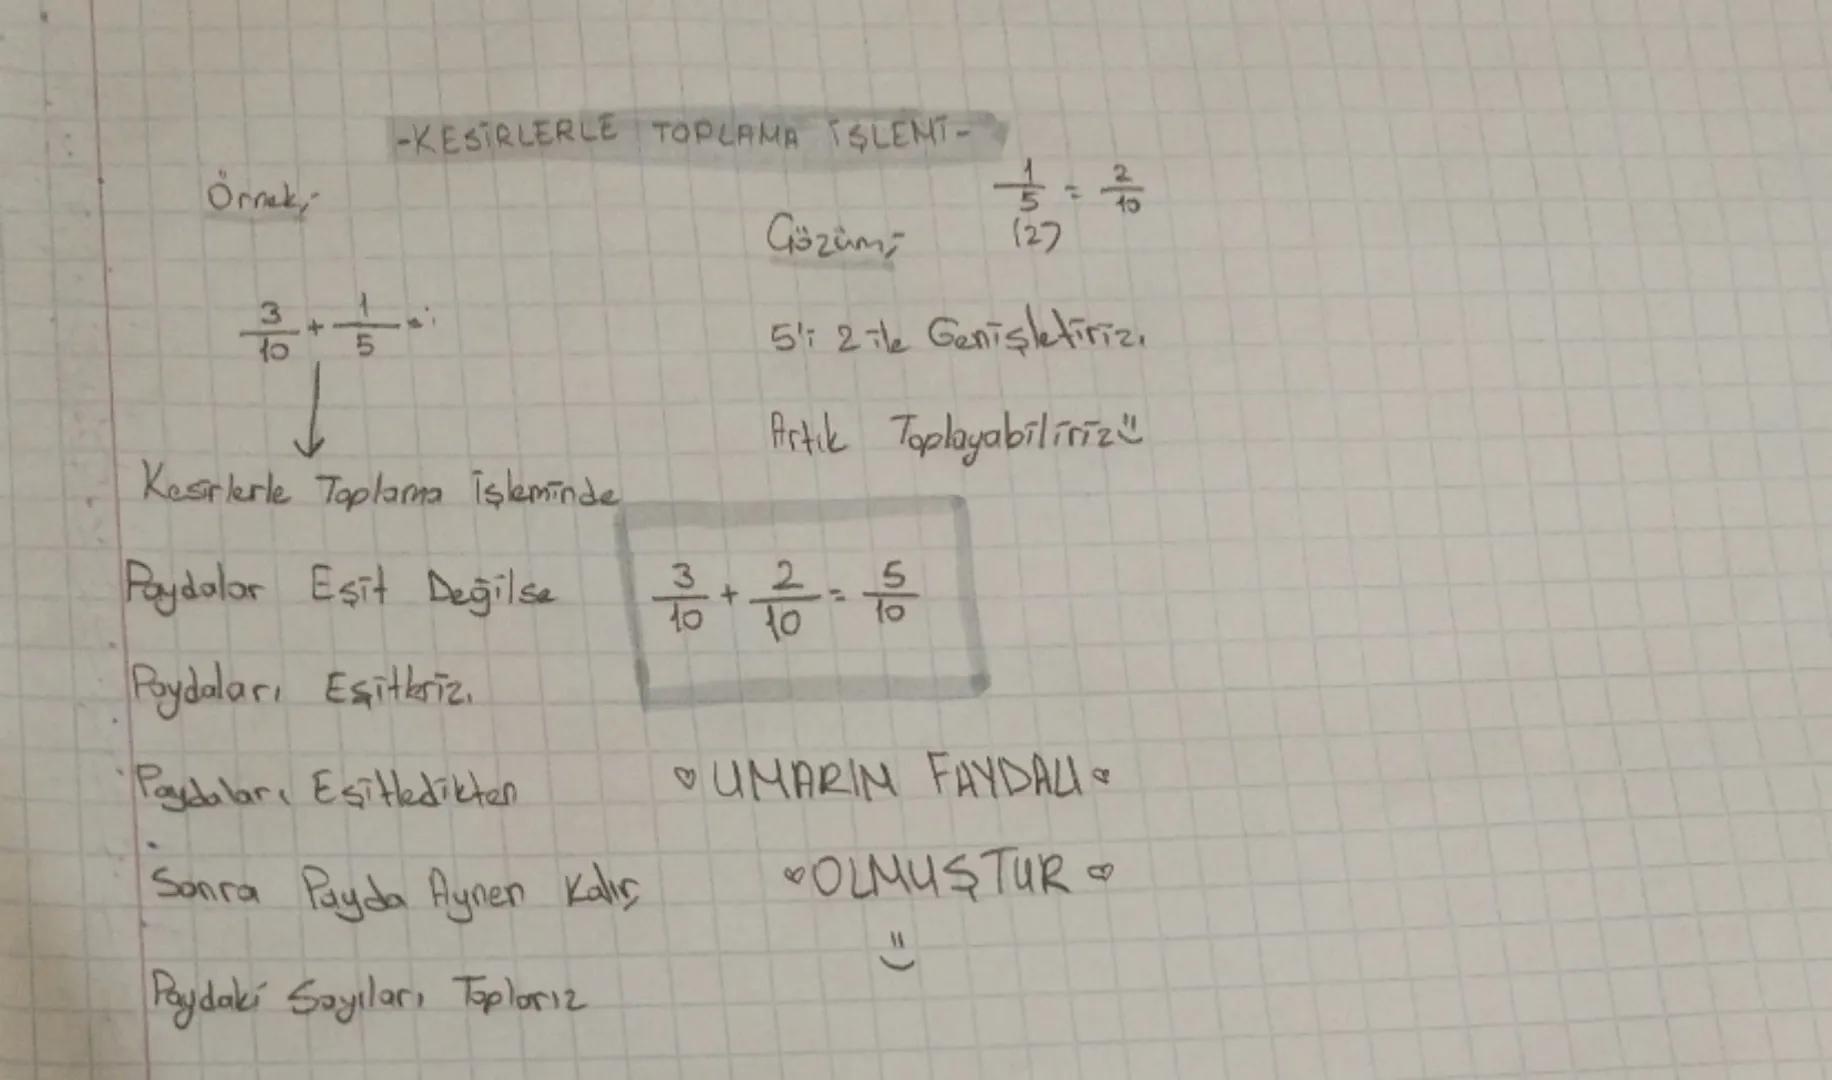 -KESİRLERLE TOPLAMA İŞLEMİ-
Örnek;
3/10 + 1/5 =
Kesirlerle Toplama İşleminde
Paydalar Eşit Değilse
Paydaları Eşitleriz.
Paydaları Eşitledikten
Sonra Payda Aynen Kalır,
Paydaki Sayıları Toplarız
Çözüm;
1/5 = 2/10
(2)
5'i 2 ile Genişletiriz.
Artık Toplayabiliriz
3/10 + 2/10 = 5/10
♡ UMARIM FAYDALI ♡
♡ OLMUŞTUR ♡